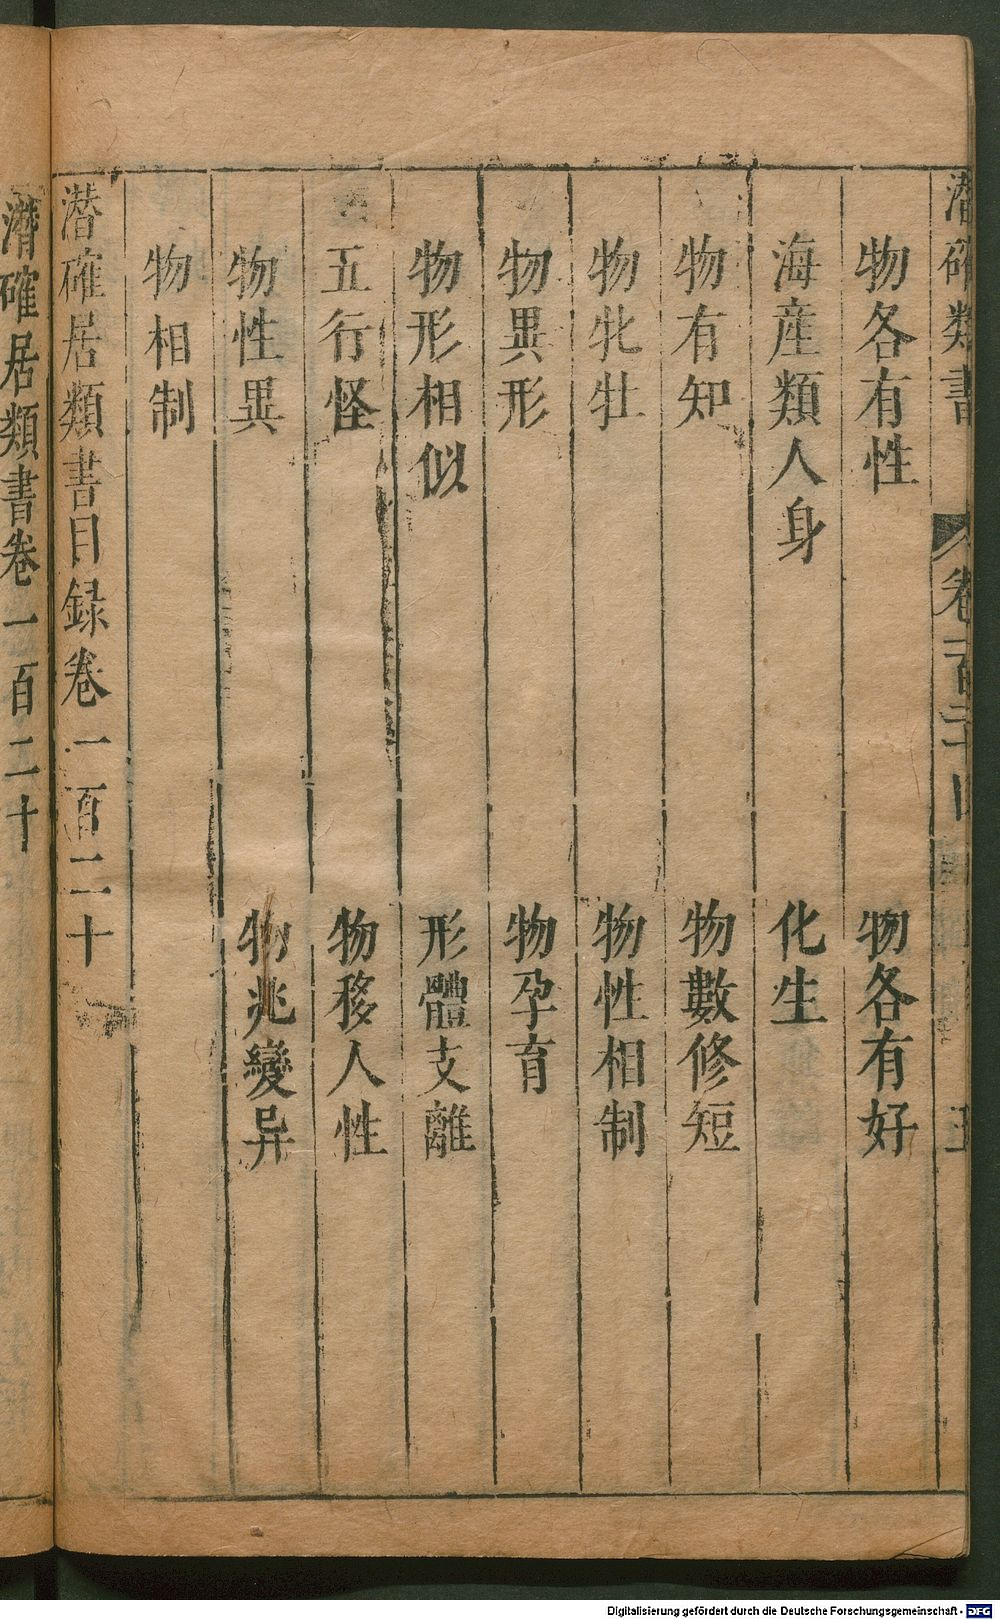 潛確類書
卷一百二十
物各有性
物各有好
海産類人身
化生
物有知
物數修短
物牝牡
物性相制
物異形
物孕育
物形相似
形體支離
五行怪
物移人性
物性異
物兆變异
物相制
潜確居類書目録卷一百二十
濳確居類書卷一百二十
Digitalisierung gefördert durch die Deutsche Forschungsgemeinschaft - DFG